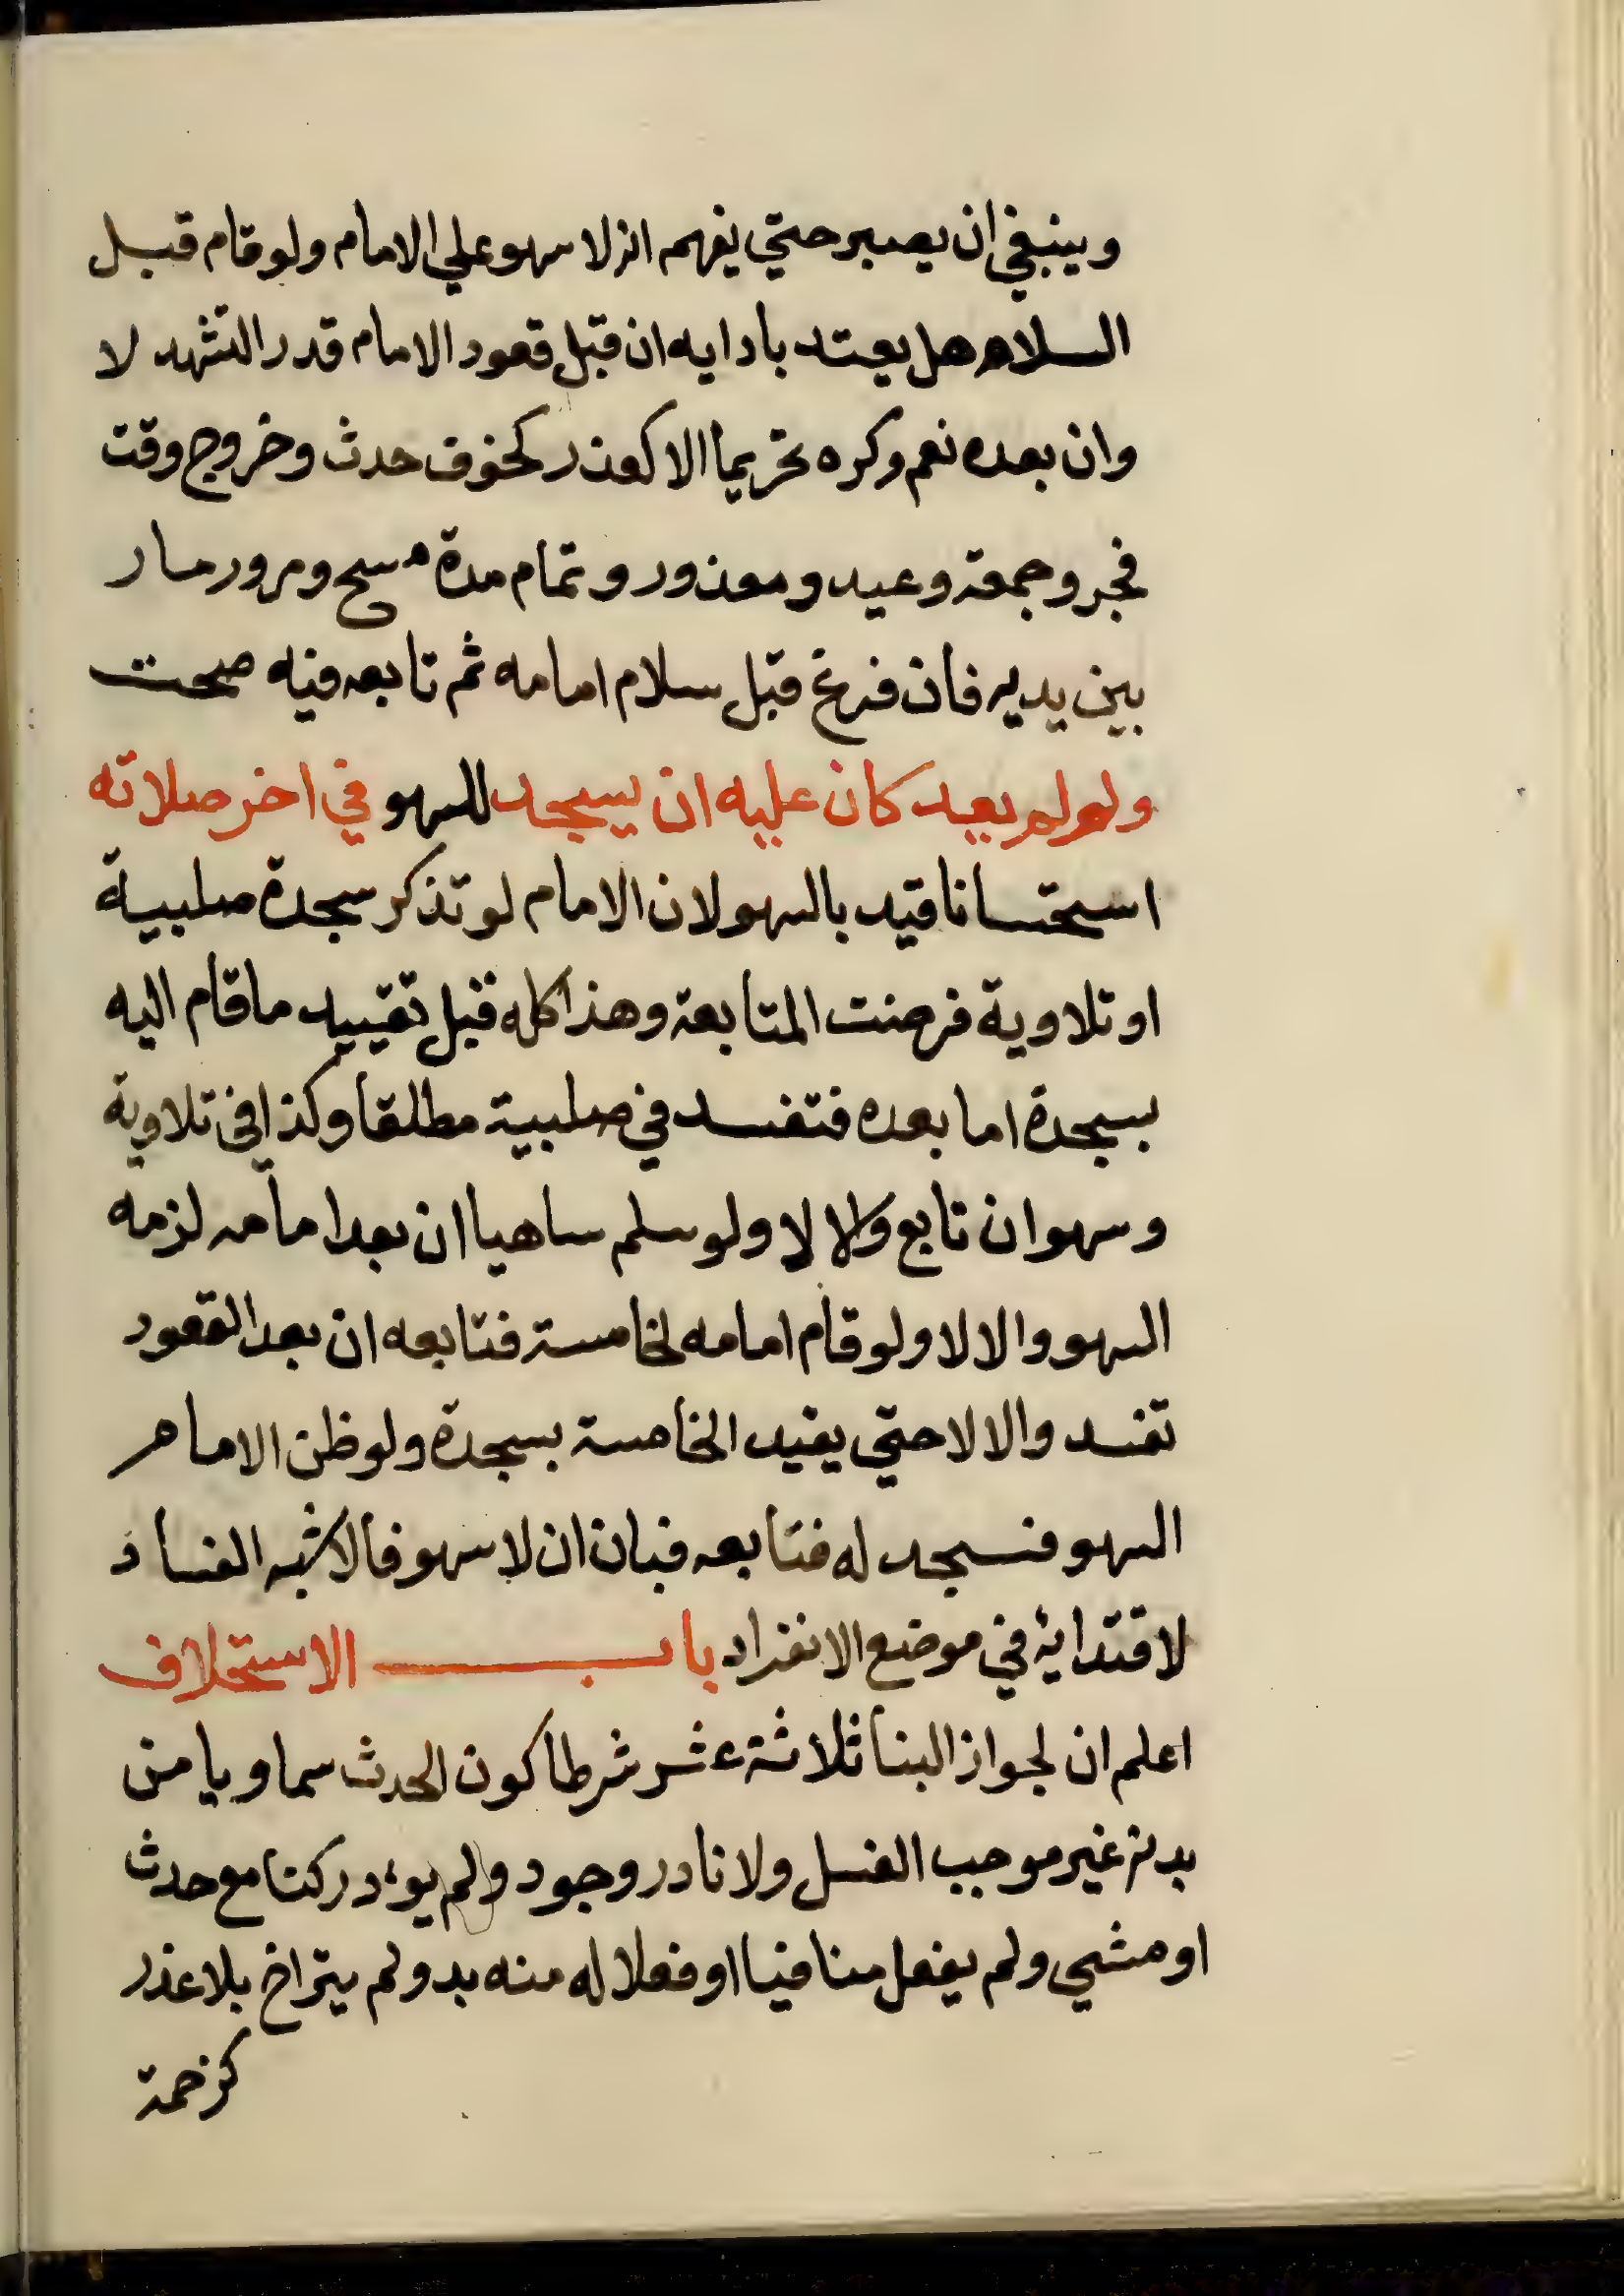 وينبغي ان يصبر حتي يفهم انه لا سهو علي الامام ولو قام قبل
السلام هل يعتد بادايه ان قبل قعود الامام قدر التشهد لا
وان بعده نعم وكره تحريما الا لعذر كخوف حدث وخروج وقت
فجر وجمعة وعيد ومعذور وتمام مدة مسح ومرور مار
بين يديه فان فرغ قبل سلام امامه ثم تابعه فيه صحت
ولو لم يعد كان عليه ان يسجد للسهو في اخر صلاته
استحسانا قيد بالسهو لان الامام لو تذكر سجدة صلبية
او تلاوية فرضت المتابعة وهذا كله قبل تقييد ما قام اليه
بسجدة اما بعده فتفسد في صلبية مطلقا وكذا في تلاوية
وسهو ان تابع والا لا ولو سلم ساهيا ان بعد امامه لزمه
السهو والا لا ولو قام امامه لخامسة فتابعه ان بعد القعود
تفسد والا لا حتي يقيد الخامسة بسجدة ولو ظن الامام
السهو فسجد له فتابعه فبان ان لا سهو فالاشبه الفساد
لاقتدايه في موضع الانفراد باب الاستخلاف
اعلم ان لجواز البنا ثلاثة عشر شرطا كون الحدث سماويا من
بدنه غير موجب الغسل ولا نادر وجود ولم يوءد ركنا مع حدث
او مشي ولم يفعل منافيا او فعلا له منه بد ولم يتراخ بلا عذر
كزحمة